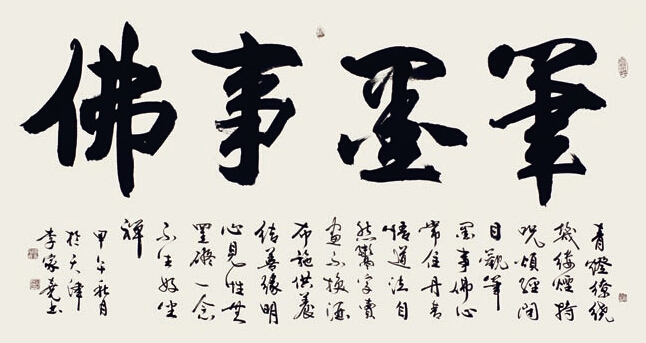 筆墨事佛
青燈繚繞
幾縷煙持
咒頌經閉
目觀筆
墨事佛心
常住丹青
悟道法自
然鬻字賣
畫不換酒
布施供養
結善緣明
心見性無
罣礙一念
不生好坐
禪
甲午秋月
於天津
李家堯書